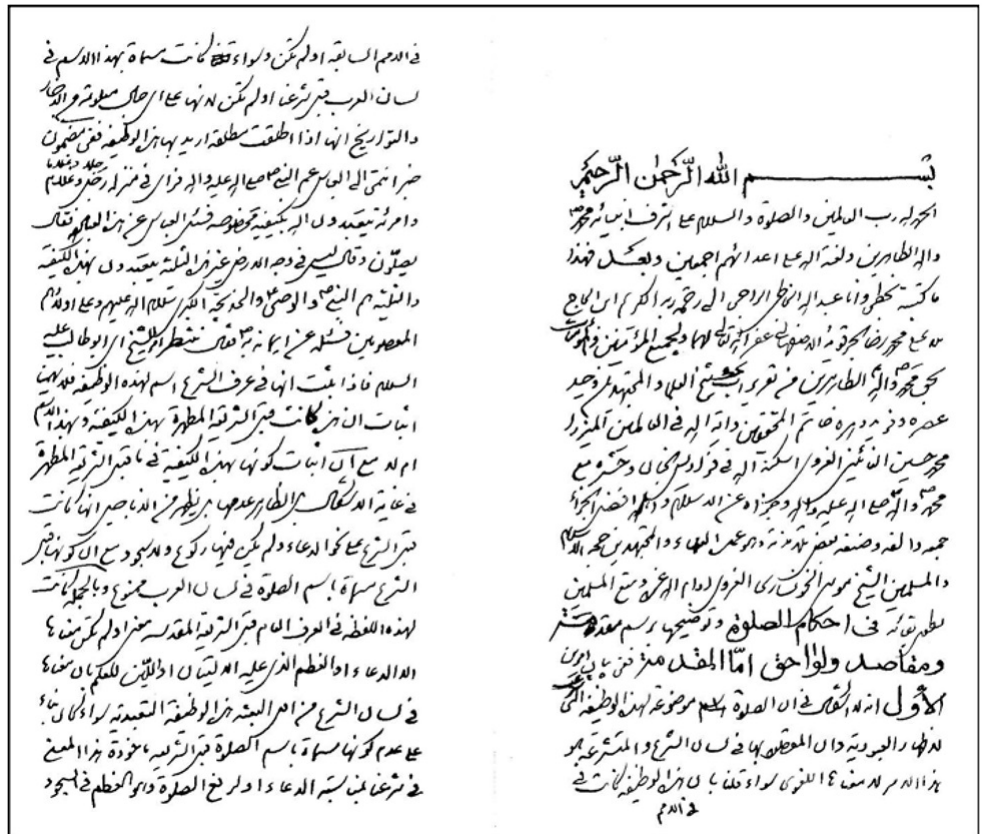 بســـم الله الرّحمٰن الرّحيم
الحمد لله رب العالمين والصلوة والسلام على اشرف انبيائه محمد ص
واله الطاهرين ولعنة الله على اعدائهم اجمعين وبعد فهذا
ما كتبه بخطى وانا عبد الله الخاطى الراجى الى رحمة ربه الكريم ابن الحاج
محمد رضا غفر الله تعالى لهما ولجميع المؤمنين والمؤمنات
بحق محمد ص وآله الطاهرين من تقرير بحث شيخ العلماء والمجتهدين وحيد
عصره وفريد دهره خاتم المحققين واية الله فى العالمين الميرزا
محمد حسين النائينى الغروى اسكنه الله فى فراديس الجنان وحشره مع
محمد ص وآله صلى الله عليه واله وجزاه عن الاسلام واهله افضل الجزاء
جمعه والفه وصنفه بعض تلامذته وهو عمدة العلماء والمجتهدين حجة الاسلام
والمسلمين الشيخ موسى الخونسارى الغروى ادام الله عزه ومتع المسلمين
بطول بقائه فى احكام الصلوة وتوضيحها برسم مقدمة
ومقاصد ولواحق امّا المقدمة ففى بيان امرين
الأول انه لا اشكال فى ان الصلوة اسم موضوعة لهذا الوظيفة التى
لاظهار العبودية وان المقصود بها فى لسان الشرع والمتشرعة هو
هذا الامر لا معناها اللغوى سواء قلنا بان هذه الوظيفة كانت فى
فى الامم
فى الامم السابقه اولم تكن وسواء كانت مسماة بهذا الاسم فى
لسان العرب قبل شرعنا اولم تكن لانها على اى حال معلومة من الاخبار
والتواريخ انها اذا اطلقت مطلقة اريد بها هذه الوظيفه ففى مضمون
خبر انتهى الى العباس عم النبى ص صلى الله عليه واله فراى فى منزله رجل وغلام
وامرئة يتعبدون الله بكيفية مخصوصه فسئل العباس عن هذه العبادة فقال
يصلّون وقال ليس فى وجه الارض غير هذه الثلثة يتعبدون بهذه الكيفية
والثلثة هم النبى ص والوصى ع والخديجة الكبرى سلام الله عليهم وعلى اولادهم
المعصومين فسئله عن ايمانه به فقال ننتظر الشيخ اى ابو طالب عليه
السلام فاذا ثبت انها فى عرف الشرع اسم لهذه الوظيفة فلا يهمنا
اثبات ان هذه كانت قبل الشريعة المطهرة بهذه الكيفية وبهذا الاسم
ام لا مع ان اثبات كونها بهذه الكيفية فى ما قبل الشريعة المطهرة
فى غاية الاشكال بل الظاهر عدمها بل يظهر من الاناجيل انها كانت
قبل الشرع على نحو الدعاء ولم يكن فيها ركوع ولا سجود مع ان كونها قبل
الشرع مسماة باسم الصلوة فى لسان العرب ممنوع وبالجملة كانت
لهذه اللفظة فى العرف العام قبل الشريعة المقدسه معنى اولم تكن معناها
الا الدعاء او العطم الذى عليه الاليتان او اللّين للعلم بان معناها
فى لسان الشرع من اهل البيت هذه الوظيفة التعبدية سواء كان بناء
على عدم كونها مسماة باسم الصلوة قبل الشريعه ماخوذة هذا المعنى
فى شرعنا بمناسبة الدعاء او لرفع الصلوة وهو العظم فى السجود